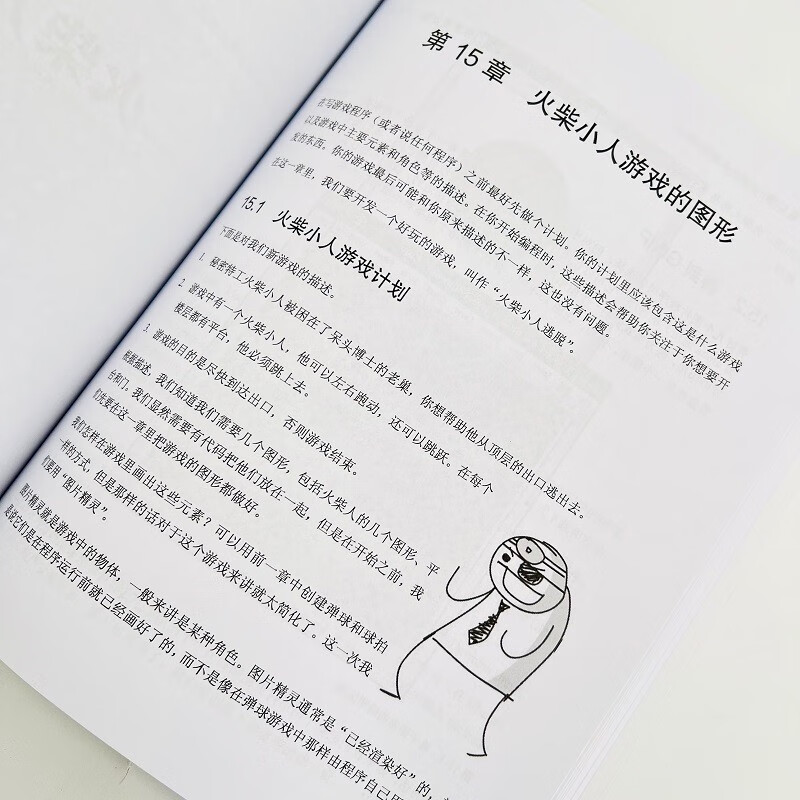 第 15 章 火柴小人游戏的图形
在写游戏程序（或者说任何程序）之前最好先做个计划。你的计划里应该包含这是什么游戏
以及游戏中主要元素和角色等的描述。在你开始编程时，这些描述会帮助你关注于你想要开
发的东西。你的游戏最后可能和你原来描述的不一样，这也没有问题。
在这一章里，我们要开发一个好玩的游戏，叫作“火柴小人逃脱”。
15.1 火柴小人游戏计划
下面是对我们新游戏的描述。
1. 秘密特工火柴小人被困在了呆头博士的老巢，你想帮助他从顶层的出口逃出去。
2. 游戏中有一个火柴小人，他可以左右跑动，还可以跳跃。在每个
楼层都有平台，他必须跳上去。
3. 游戏的目的是尽快到达出口，否则游戏结束。
根据描述，我们知道我们需要几个图形，包括火柴人的几个图形、平
台和门。我们显然需要有代码把他们放在一起，但是在开始之前，我
们先要在这一章里把游戏的图形都做好。
我们怎样在游戏里画出这些元素？可以用前一章中创建弹球和球拍
一样的方式，但是那样的话对于这个游戏来讲就太简化了。这一次我
们要用“图片精灵”。
图片精灵就是游戏中的物体，一般来讲是某种角色。图片精灵通常是“已经渲染好”的，
是说它们是在程序运行前就已经画好了的，而不是像在弹球游戏中那样由程序自己